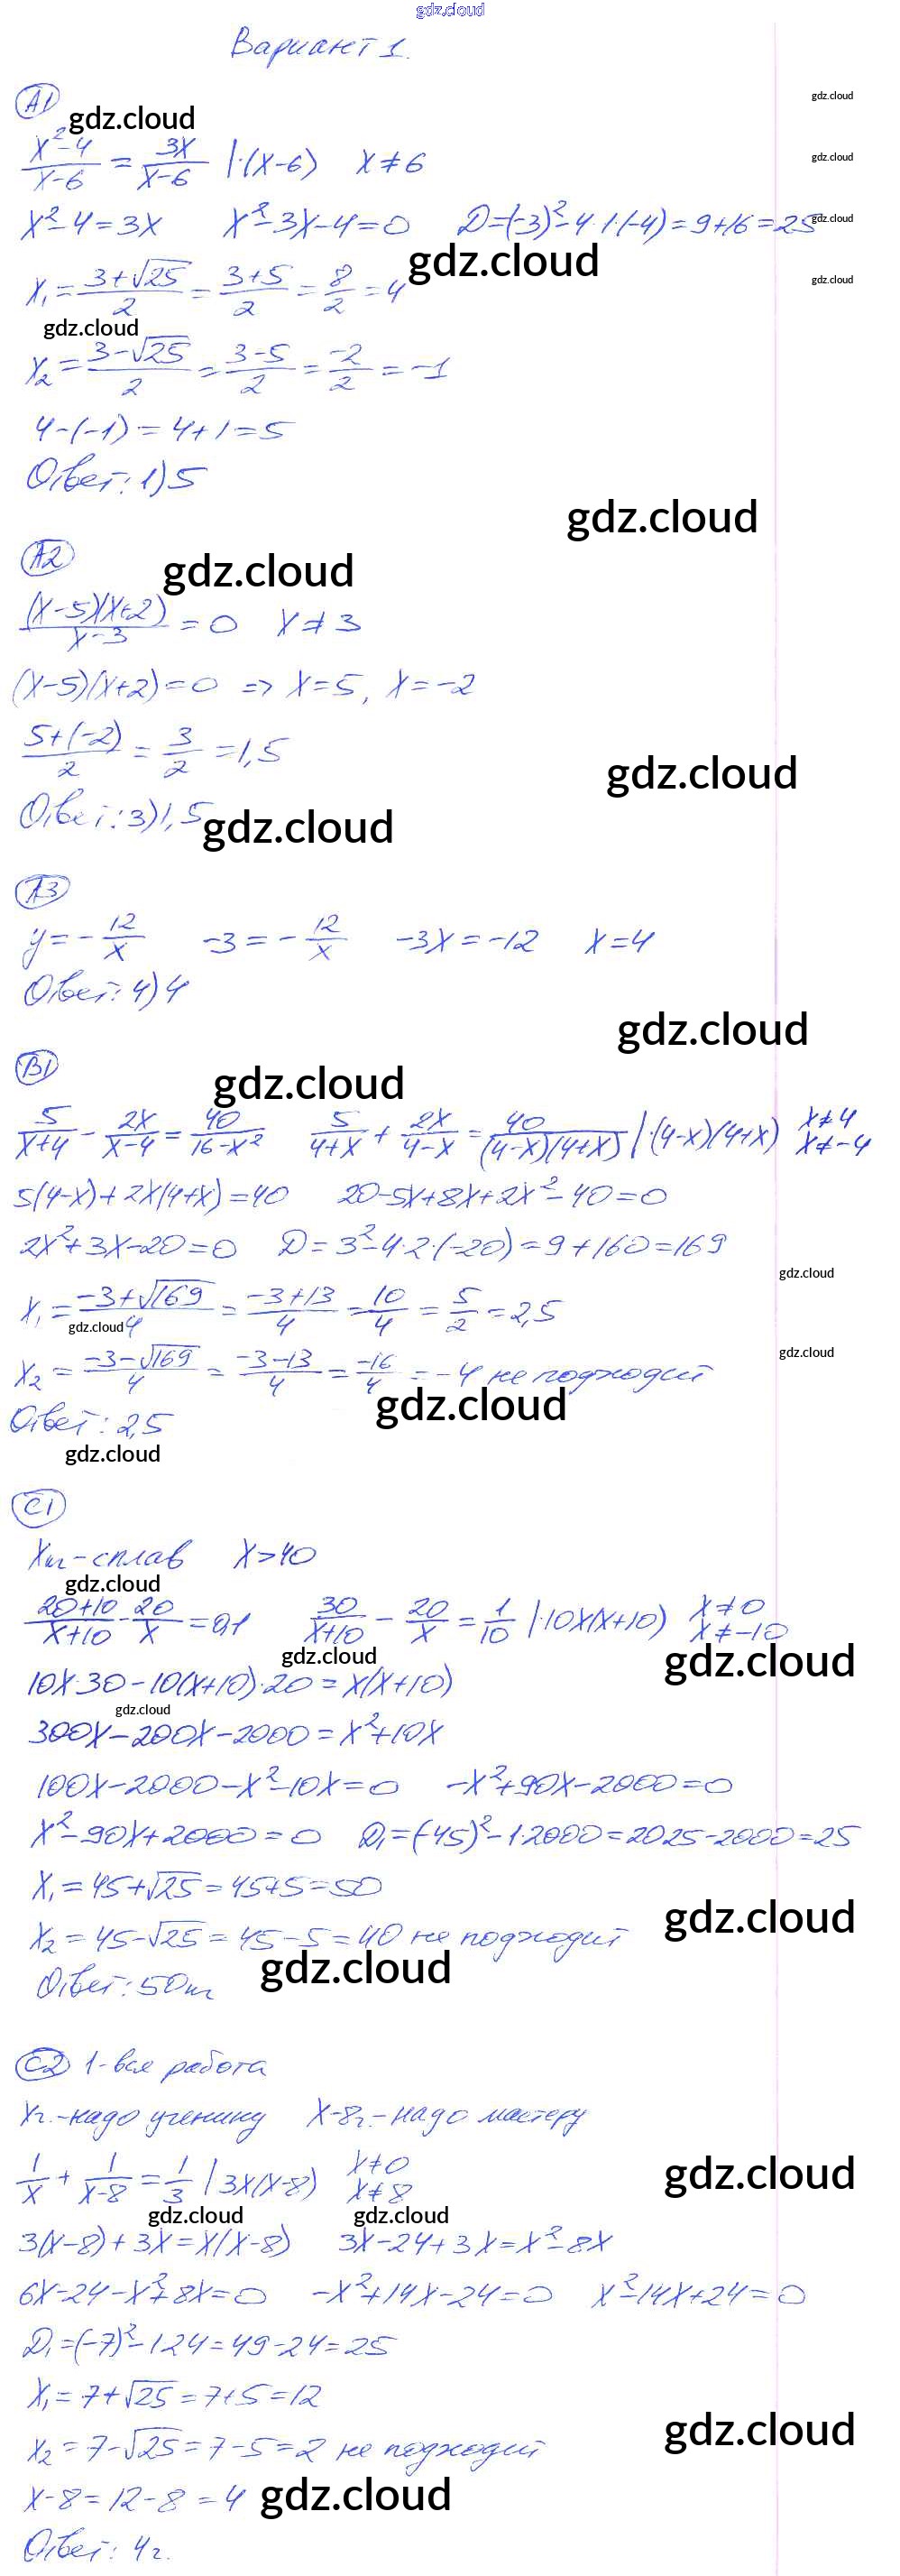 gdz.cloud
Вариант 1.
А1
gdz.cloud
gdz.cloud
(x²-4)/(x-6) = 3x/(x-6) |·(x-6) x≠6
gdz.cloud
x²-4=3x x²-3x-4=0 D=(-3)²-4·1·(-4)=9+16=25
gdz.cloud
gdz.cloud
x₁=(3+√25)/2=(3+5)/2=8/2=4
gdz.cloud
gdz.cloud
x₂=(3-√25)/2=(3-5)/2=-2/2=-1
4-(-1)=4+1=5
Ответ: 1) 5
gdz.cloud
А2
gdz.cloud
(x-5)(x+2)/(x-3)=0 x≠3
(x-5)(x+2)=0 => x=5, x=-2
(5+(-2))/2=3/2=1,5
gdz.cloud
Ответ: 3) 1,5
gdz.cloud
А3
y=-12/x -3=-12/x -3x=-12 x=4
Ответ: 4) 4
gdz.cloud
В1
gdz.cloud
5/(x+4)-2x/(x-4)=40/(16-x²) 5/(4+x)+2x/(4-x)=40/((4-x)(4+x)) |·(4-x)(4+x) x≠4 x≠-4
5(4-x)+2x(4+x)=40 20-5x+8x+2x²-40=0
2x²+3x-20=0 D=3²-4·2·(-20)=9+160=169
gdz.cloud
x₁=(-3+√169)/4=(-3+13)/4=10/4=5/2=2,5
gdz.cloud
gdz.cloud
x₂=(-3-√169)/4=(-3-13)/4=-16/4=-4 не подходит
gdz.cloud
Ответ: 2,5
gdz.cloud
С1
xт-сплав x>40
gdz.cloud
(20+10)/(x+10)-20/x=0,1 30/(x+10)-20/x=1/10 |·10x(x+10) x≠0 x≠-10
gdz.cloud
gdz.cloud
10x·30-10(x+10)·20=x(x+10)
gdz.cloud
300x-200x-2000=x²+10x
100x-2000-x²-10x=0 -x²+90x-2000=0
x²-90x+2000=0 D₁=(-45)²-1·2000=2025-2000=25
x₁=45+√25=45+5=50
gdz.cloud
x₂=45-√25=45-5=40 не подходит
gdz.cloud
Ответ: 50т
С2 1-вся работа
xч.-надо ученику x-8ч.-надо мастеру
1/x+1/(x-8)=1/3 |3x(x-8) x≠0 x≠8
gdz.cloud
gdz.cloud
gdz.cloud
3(x-8)+3x=x(x-8) 3x-24+3x=x²-8x
6x-24-x²+8x=0 -x²+14x-24=0 x²-14x+24=0
D₁=(-7)²-1·24=49-24=25
x₁=7+√25=7+5=12
gdz.cloud
x₂=7-√25=7-5=2 не подходит
x-8=12-8=4
gdz.cloud
Ответ: 4ч.